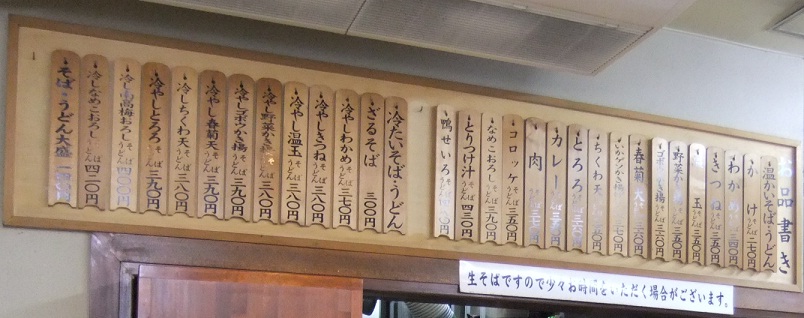 お品書き
温かいそば・うどん
かけ そば うどん 二七〇円
わかめ そば うどん 三四〇円
きつね そば うどん 三五〇円
玉 そば うどん 三五〇円
野菜かき揚 三五〇円
ゴボウかき揚 そば うどん 三六〇円
春菊天 三六〇円
いかゲソかき揚 七〇円
ちくわ天 そば うどん
とろろ
カレー
肉
コロッケ そば うどん 三五〇円
なめこおろし そば うどん 三九〇円
とりつけ汁 そば うどん 四三〇円
鴨せいろ 円
冷たいそば・うどん
ざるそば 三〇〇円
冷やしわかめ そば うどん 三六〇円
冷やしきつね そば うどん 三八〇円
冷やし温玉 そば うどん 三八〇円
冷やし野菜かき揚 三八〇円
冷やしゴボウかき揚 そば うどん 三九〇円
冷やし春菊天 そば うどん 三九〇円
冷しちくわ天 そば うどん 三八〇円
冷やしとろろ そば うどん 三九〇円
冷し南高梅おろし そば うどん 四〇〇円
冷しなめこおろし そば うどん 四二〇円
そば・うどん大盛 円
生そばですので少々お時間をいただく場合がございます。